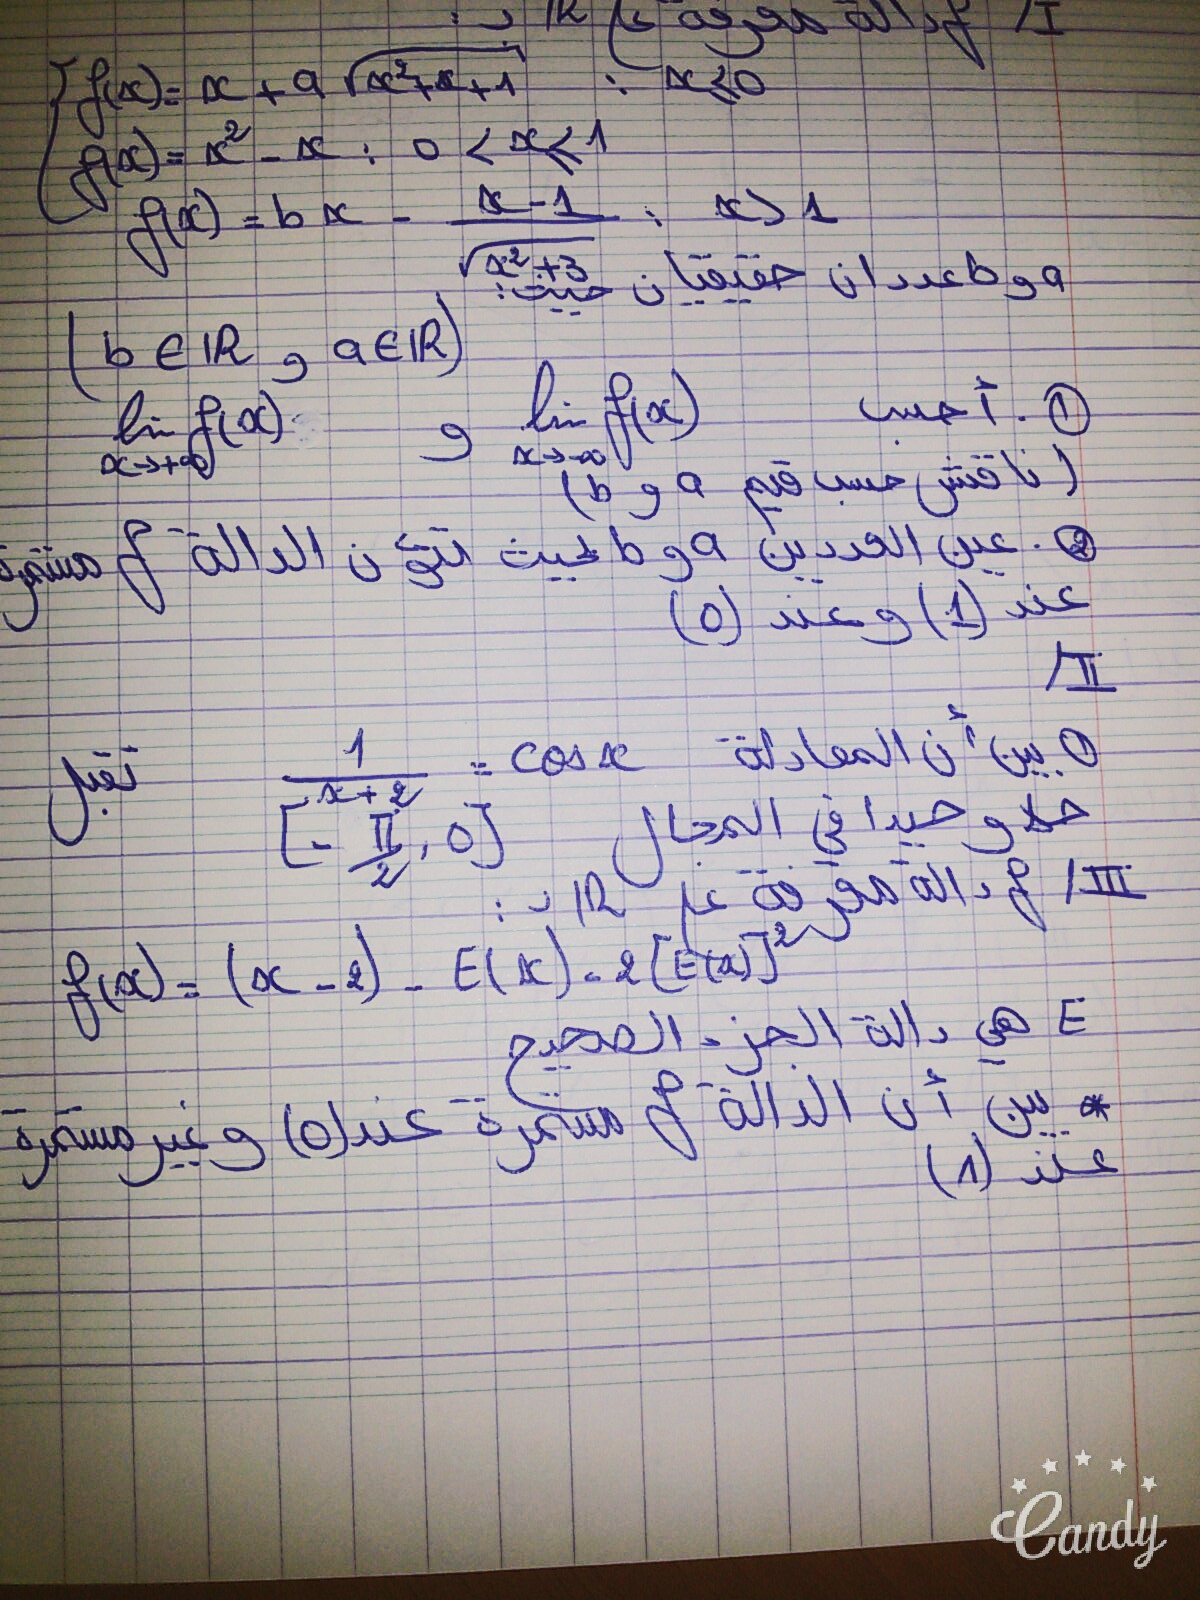 I/ f دالة معرفة على IR بـ :
f(x) = x + a √(x²+x+1) : x ≤ 0
f(x) = x² - x : 0 < x ≤ 1
f(x) = bx - (x-1)/√(x²+3) : x > 1
a و b عددان حقيقيان حيث :
(a ∈ IR و b ∈ IR)
① . أحسب lim f(x) x→-∞ و lim f(x) x→+∞
(ناقش حسب قيم a و b)
② . عين العددين a و b بحيث تكون الدالة f مستمرة
عند (1) و عند (0)
II/
① . بين أن المعادلة cos x = 1/(x+2) تقبل
حلا وحيدا في المجال [-π/2, 0]
III/ f دالة معرفة على IR بـ :
f(x) = (x - 2) - E(x) - 2[E(x)]²
E هي دالة الجزء الصحيح
* بين أن الدالة f مستمرة عند (0) و غير مستمرة
عند (1)
Candy